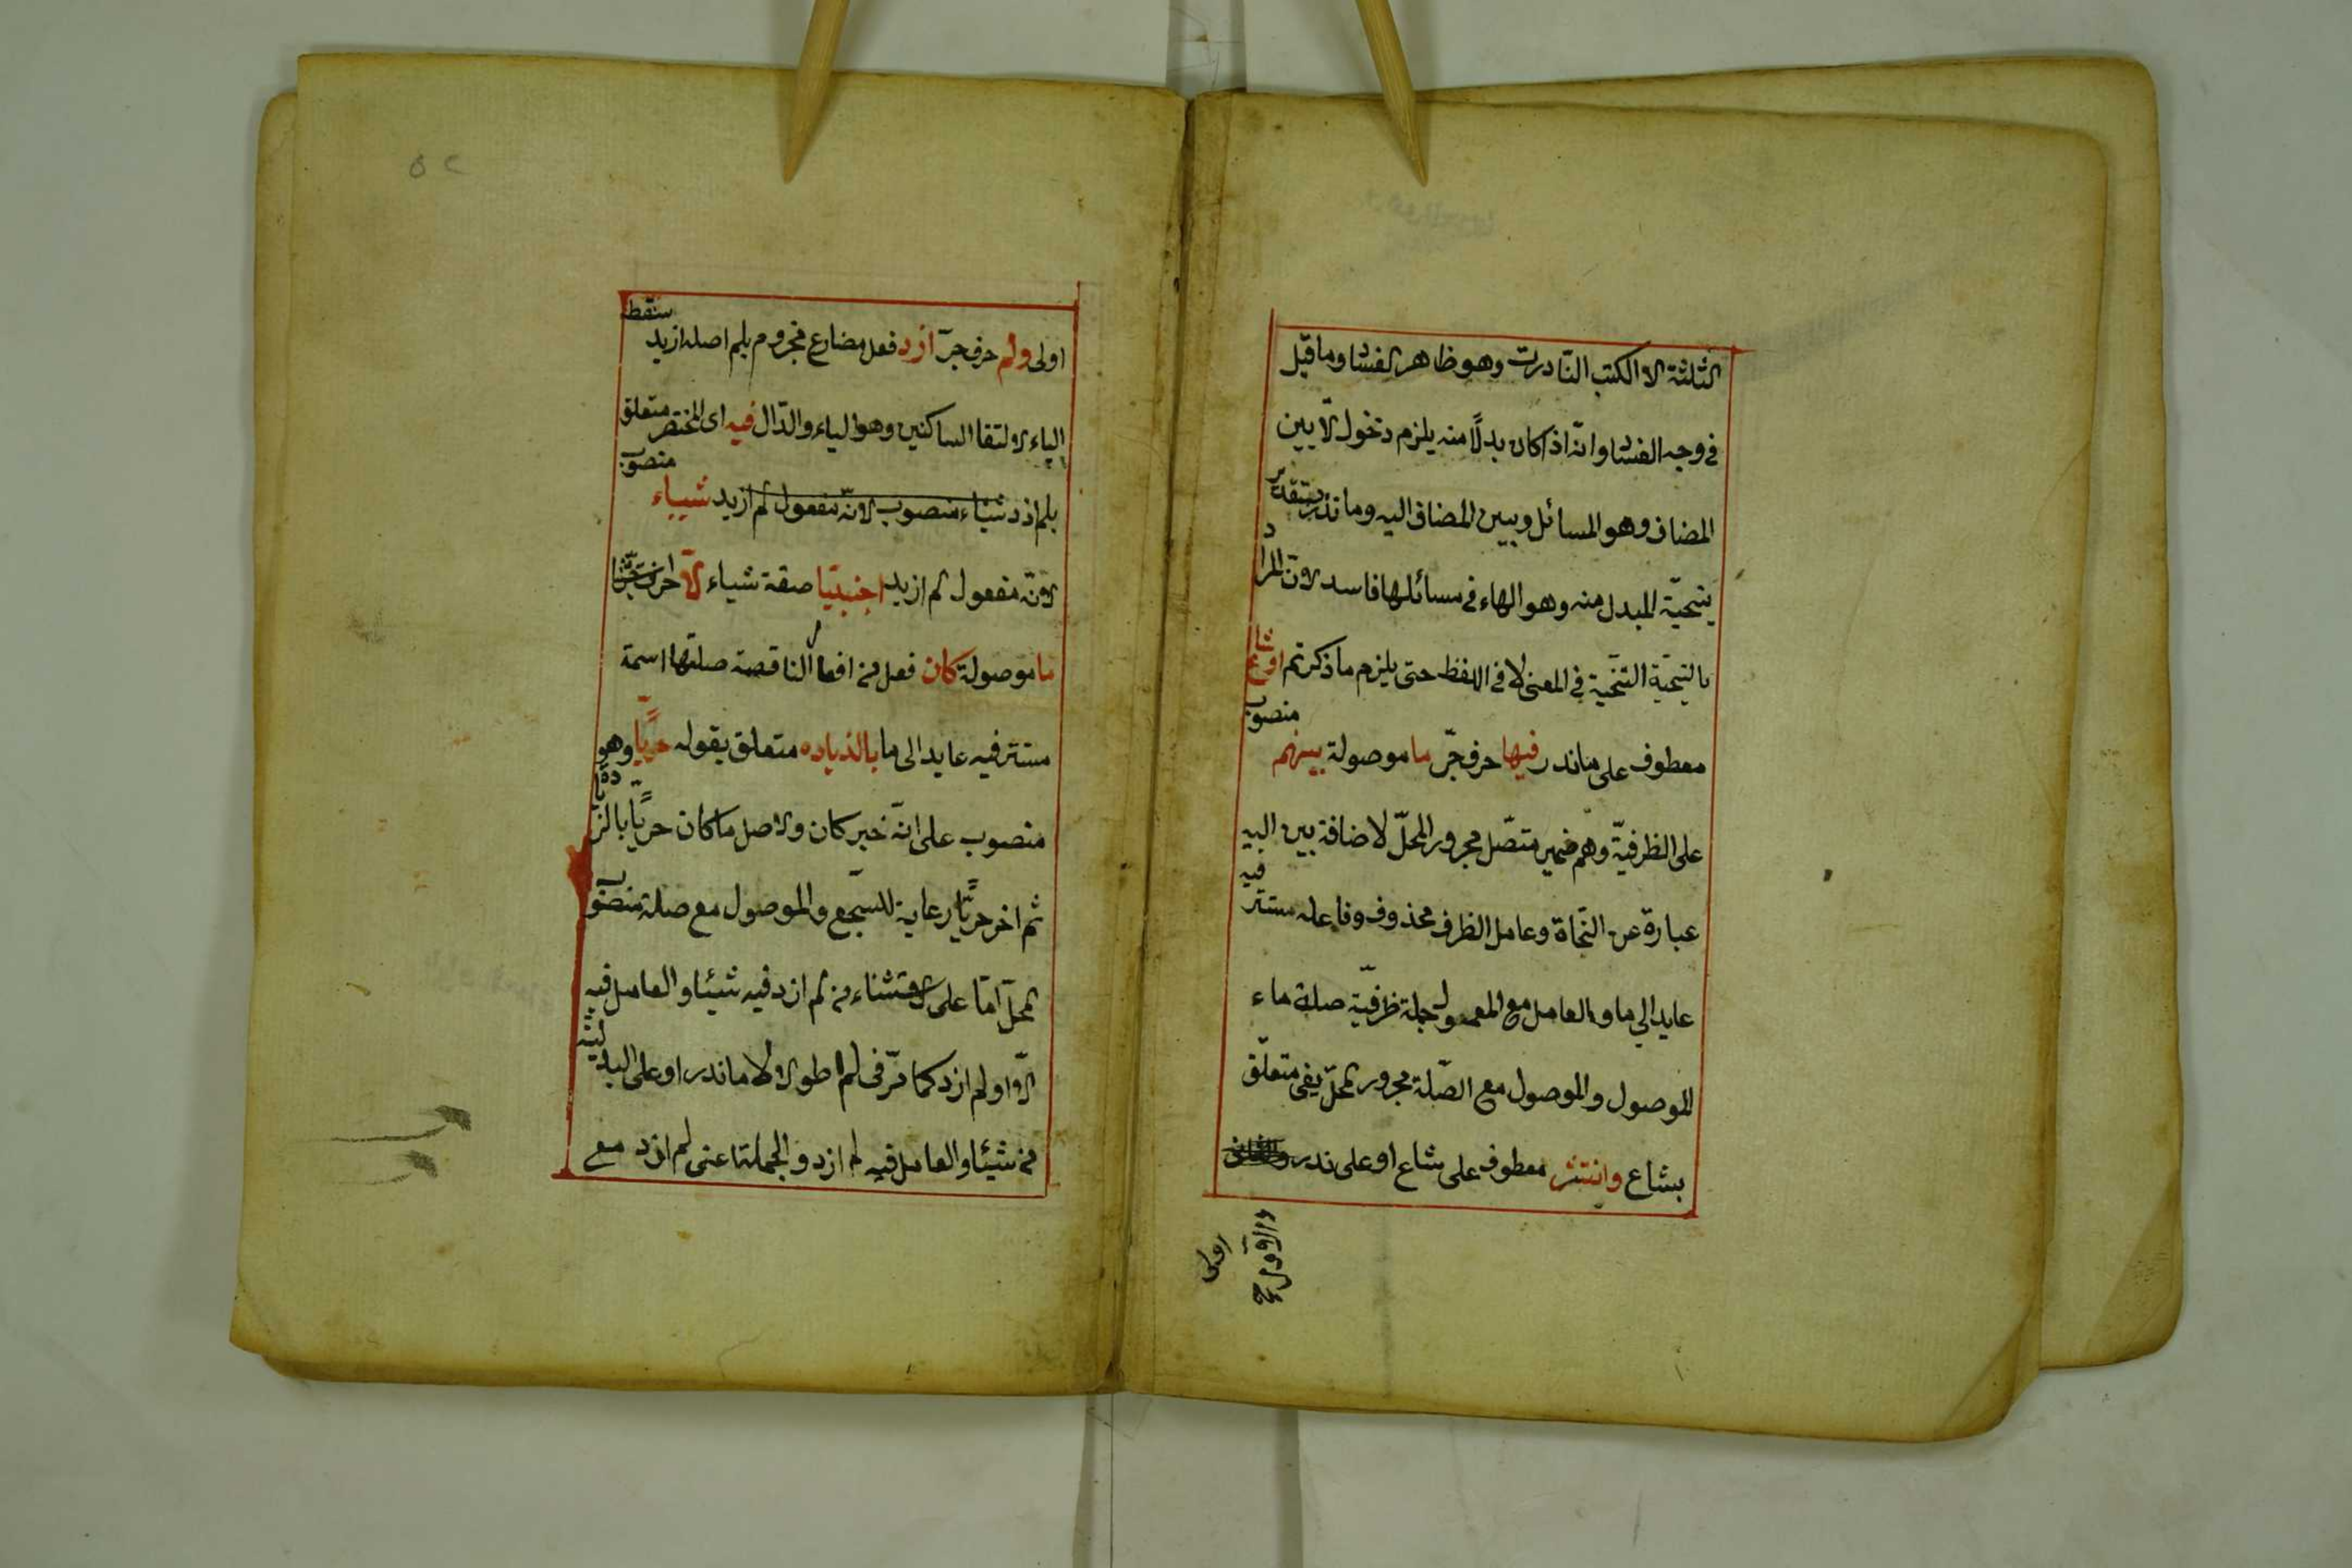 الثلثة الا الكتب النّادرات وهو ظاهر الفساد وما قيل
في وجه الفساد انّه اذا كان بدلًا منه يلزم دخول الّا بين
المضاف وهو المسائل وبين المضاف اليه وما نذر بتقدير
ينحيّة المبدل منه وهو الهاء في مسائلها فاسد لانّ المراد
بالتنحيّة التنحّية في المعنى لا في اللفظ حتى يلزم ما ذكرتم او شاع
معطوف على ما ندر فيها حرف جرّ ما موصولة بينهم منصوب
على الظرفيّة وهم ضمير متصّل مجرور المحلّ لاضافة بين اليه
عبارة عن النّحاة وعامل الظرف محذوف وفاعله مستتر فيه
عايد الي ما والعامل مع المعمول جملة ظرفيّة صلة ماء
الموصول والموصول مع الصّلة مجرور المحلّ بفى متعلّق
بشاع وانتشر معطوف على شاع او على ندر
والاوّل
اولى
٥٢
اولى ولم حرف جرّ ازد فعل مضارع مجزوم بلم اصله ازيد سقط
الياء لالتقا الساكنين وهو الياء والدّال فيه اى المختصر متعلق
بلم ازد شياء منصوب لانّه مفعول لم ازيد شيياء منصوب
لانّه مفعول لم ازيد اجنبيّا صفة شياء الّا حرف
ما موصولة كان فعل من افعال الناقصة صلتها اسمة
مستتر فيه عايد الى ما بالذياده متعلق بقوله حريًّا وهو
منصوب على انّه خبر كان والاصل ما كان حريًّا بالزيادة
ثم اخر حريًّا رعاية للسّجع والموصول مع صلة منصوب
المحلّ امّا على الاستثناء من لم ازد فيه شيئا والعامل فيه
الّا او لم ازد كما مّر فى لم اطول الا ما ندر او على البدليّة
من شيئا والعامل فيه لم ازد والجملة اعنى لم ازد مع